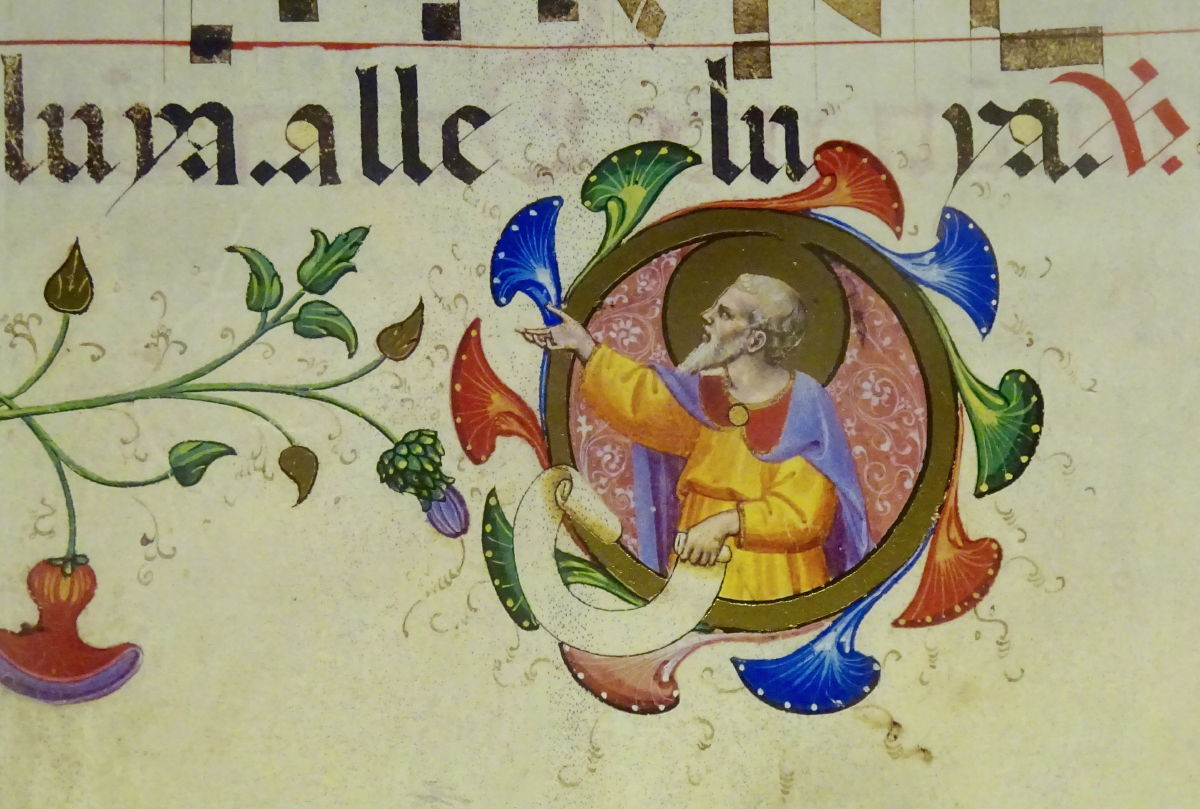 luya. alle lu ya. V